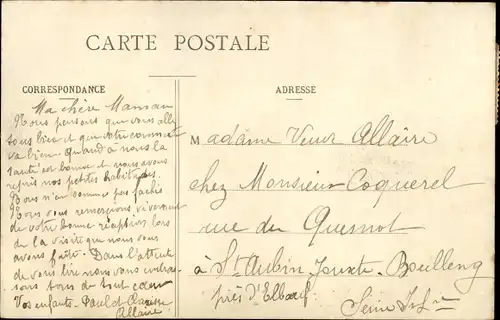 CARTE POSTALE
CORRESPONDANCE
Ma chère Maman
Nous pensons que vous allez
tous bien et que votre commerce
va bien. Quand à nous la
santé est bonne et nous avons
repris nos petites habitudes
n'en somme pas fachés
vous remercions vivement
de votre bonne réception lors
de la visite que nous vous
avons faite. Dans l'attente
de vous lire nous vous embras-
sons tous de tout cœur
Vos enfants. Paul et Clarisse
Allaire
ADRESSE
Madame Veuve Allaire
chez Monsieur Coquerel
rue du Quesnot
à St Aubin Jouxte-Boulleng
près d'Elbeuf
Seine Infre